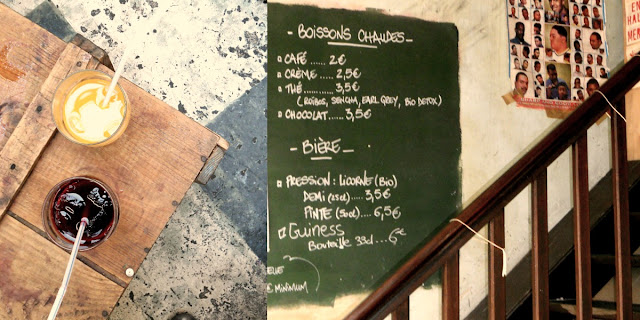 - BOISSONS CHAUDES -
CAFÉ ...... 2€
CRÈME ..... 2,5€
THÉ ........... 3,5€
(ROÏBOS, SENCHA, EARL GREY, BIO DETOX)
CHOCOLAT ..... 3,5€
- BIÈRE -
PRESSION : LICORNE (BIO)
DEMI (25cl) ..... 3,5€
PINTE (50cl) .... 6,5€
Guiness
Bouteille 33cl ... 6€
MINIMUM
EN